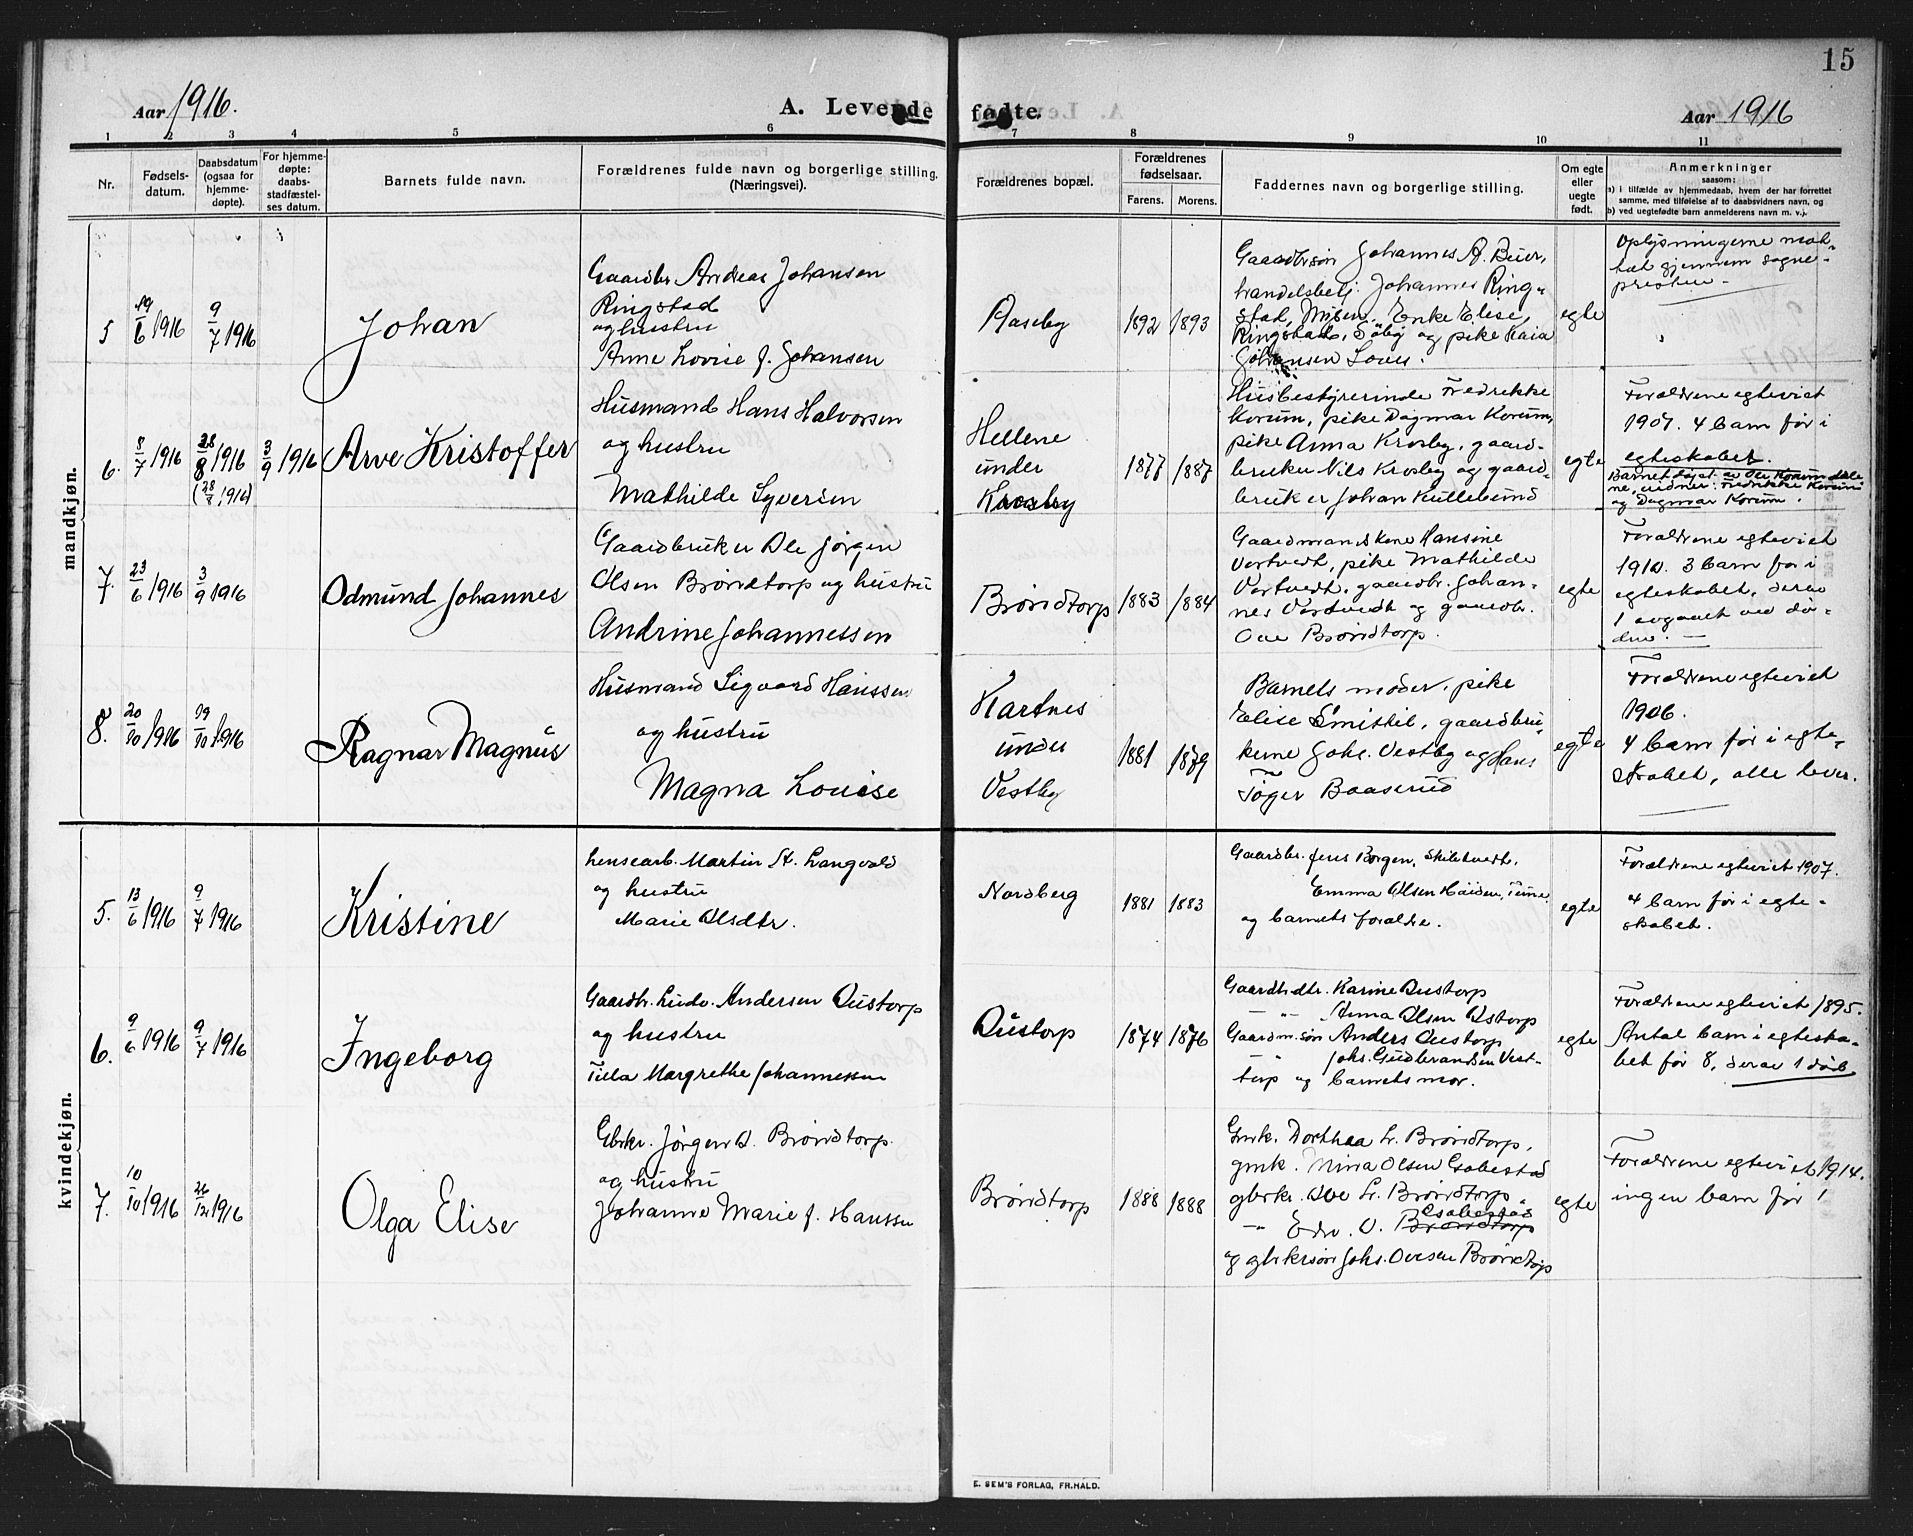 15
Aar 1916.
A. Levende fødte.
Aar 1916
1 2 3 4 5 6 7 8 9 10 11
Nr.
Fødsels-
datum.
Daabsdatum
(ogsaa for
hjemme-
døpte).
For hjemme-
døpte:
daabs-
stadfæstel-
ses datum.
Barnets fulde navn.
Forældrenes fulde navn og borgerlige stilling.
(Næringsvei).
Forældrenes bopæl.
Forældrenes
fødselsaar.
Farens. Morens.
Faddernes navn og borgerlige stilling.
Om egte
eller
uegte
født.
Anmerkninger
saasom:
a) i tilfælde av hjemmedaab, hvem der har forrettet
samme, med tilføielse af to daabsvidners navn, og
b) ved uegtefødte barn anmelderens navn m. v.).
mandkjøn.
5
19/6 1916
9/7 1916
Johan
Gaardbr Andreas Johansen
Ringstad
og hustru
Anne Lovise f. Johansen
Aaseby
1892 1893
Gaardbrsøn Johannes A. Buer,
handelsbetj. Johannes Ring-
stad, Mysen, Enke Elise
Ringstad, Søby og pike Kaia
Johansen
egte
Oplysningerne mot-
tat gjennem sogne-
presten.
6.
8/7 1916
28/8 1916
1916)
3/9 1916
Arve Kristoffer
Husmand Hans Halvorsen
og hustru
Mathilde Syversen
Hellene
under
Krosby
1877 1887
Husbestyrerinde Fredrikke
Korum, pike Dagmar Korum,
pike Anna Krosby, gaard-
bruker Nils Krosby og gaard-
bruker Johan Kullebund
egte
Forældrene egteviet
1907. 4 barn før i
egteskabet.
Barnet døpt av Ole Korum
vidner: Fredrikke Korum
og Dagmar Korum.
7.
23/6 1916
3/9 1916
Odmund Johannes
Gaardbruker Ole Jørgen
Olsen Brøndtorp og hustru
Andrine Johannessen
Brøndtorp
1883 1884
Gaardmandskone Hansine
Vortvedt, pike Mathilde
Vortvedt, gaardbr. Johan-
nes Vortvedt og gaardbr.
Ove Brøndtorp.
egte
Forældrene egteviet
1910. 3 barn før i
egteskabet, derav
1 avgaaet ved dø-
den.
8.
20/10 1916
1916
Ragnar Magnus
Husmand Sigvard Hanssen
og hustru
Magna Louise
Kartnes
under
Vestby
1881 1879
Barnets moder, pike
Elise Smistil, gaardbru-
kerne Johs. Vestby og Hans
Tøger Baaserud
egte
Forældrene egteviet
1906.
4 barn før i egte-
skabet, alle lever.
kvindekjøn.
5.
13/6 1916
9/7 1916
Kristine
Lensearb. Martin St. Langvold
og hustru
Marie Olsdtr.
Nordberg
1881 1883
Gaardbr. Jens Borgen, Skiletvedt,
Emma Olsen
og barnets forældre.
egte
Forældrene egteviet 1907.
4 barn før i egte-
skabet.
6.
9/6 1916
9/7 1916
Ingeborg
Gaardbr. Ludv. Andersen Oustorp
og hustru
Tilla Margrethe Johannessen
Oustorp
1874 1876
Gaardbrdtr. Karine Oustorp
—"— Anna Olsen Ostorp
Gaardm.søn Anders Oustorp
—"— Johs. Gudbrandsen Vest-
torp og barnets mor.
egte
Forældrene egteviet 1895.
Antal barn i egteska-
bet før 8, derav 1 død
7.
10/10 1916
26/12 1916
Olga Elise
Gbrkr. Jørgen O. Brøndtorp
og hustru
Johanne Marie f. Hanssen
Brøndtorp
1888 1888
Gmk. Dorthea L. Brøndtorp,
gmk. Nina Olsen Esobestad
gbrkr. Ove L. Brøndtorp,
Esobestad
—"— Edv. O. Brøndtorp
og gbrkrsøn Johs. Ovesen Brøndtorp
egte
Forældrene egteviet 1914.
ingen barn før!
E. SEM'S FORLAG, FR.HALD.